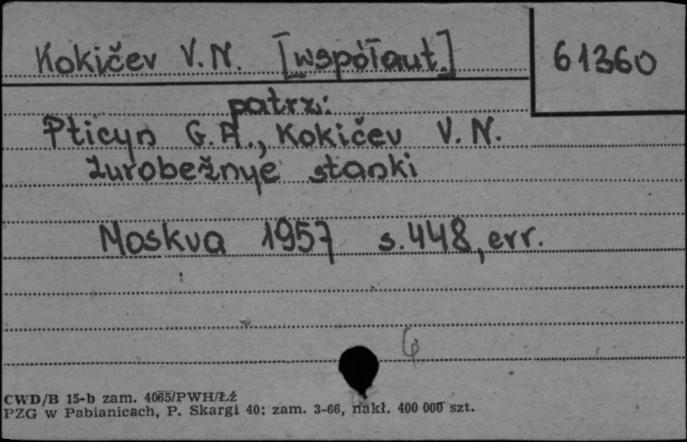 Kokičev V.N. [współaut.]
61360
patrz:
Pticyn G.A., Kokičev V.N.
Zurobežnye stanki
Moskva 1957 s.448, err.
CWD/B 15-b zam. 4065/PWH/Łź
PZG w Pabianicach, P. Skargi 40; zam. 3-66, nakł. 400 000 szt.